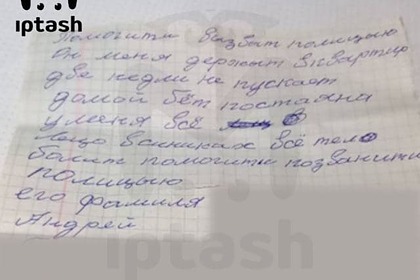 iptash
Помогити вызвыт полицыю
Он меня держыт вквартире
две недли не пускает
домой бёт постаяна
уменя всё в
лицо всиниках всё тело
болит помогити позванити
полицыю
его фамиля
Андрей
iptash